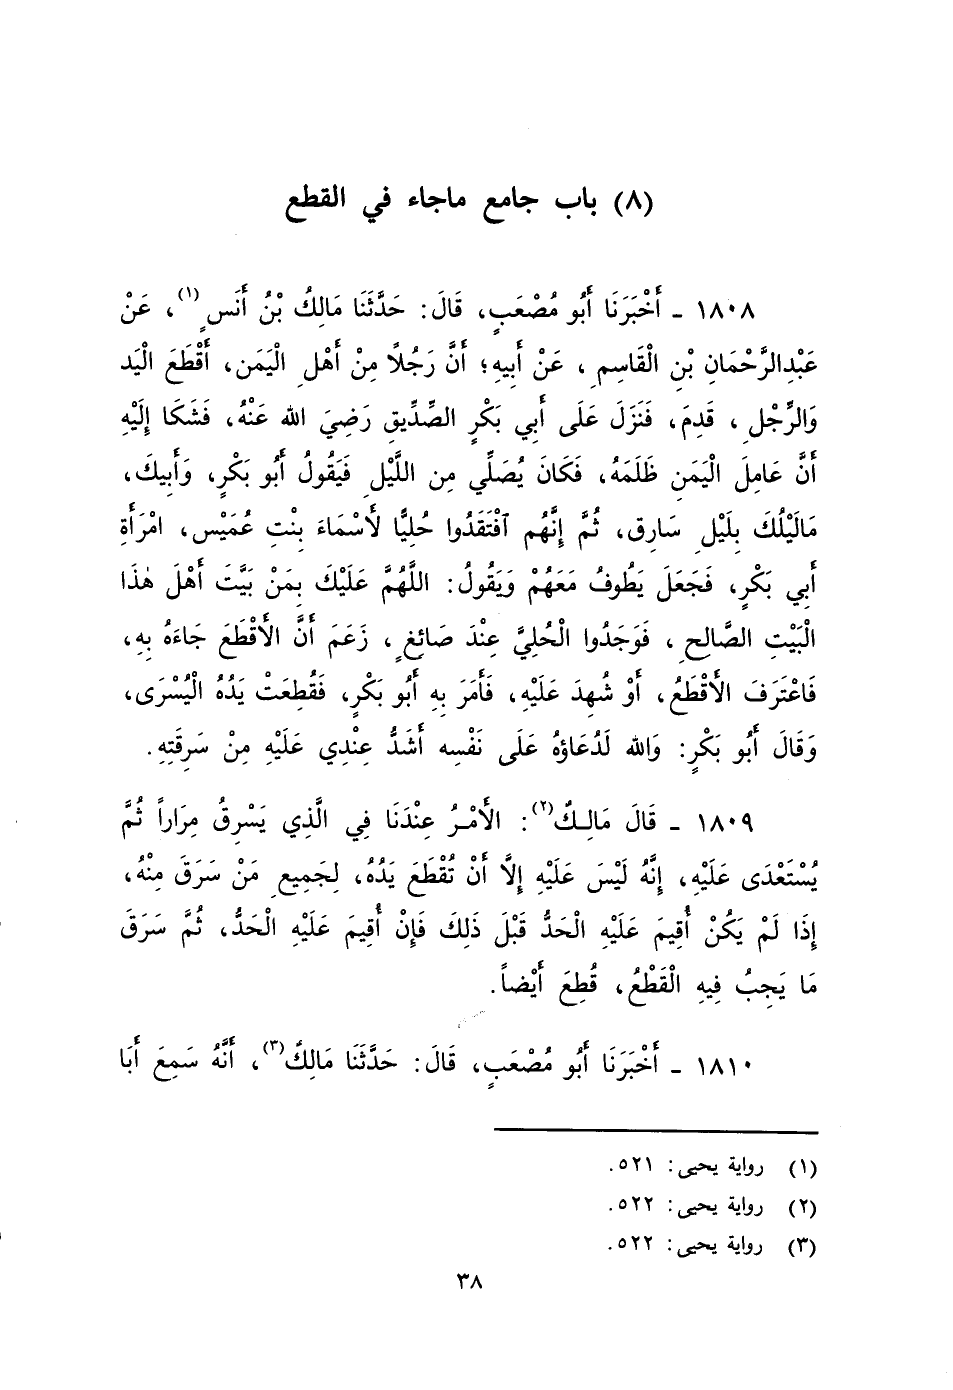 (٨) باب جامع ماجاء في القطع
١٨٠٨ ـ أَخْبَرَنَا أَبُو مُصْعَبٍ، قَالَ: حَدَّثَنَا مَالِكُ بْنُ أَنَسٍ(١)، عَنْ
عَبْدِالرَّحْمَانِ بْنِ الْقَاسِمِ، عَنْ أَبِيهِ؛ أَنَّ رَجُلاً مِنْ أَهْلِ الْيَمَنِ، أَقْطَعَ الْيَدِ
وَالرِّجْلِ، قَدِمَ، فَنَزَلَ عَلَى أَبِي بَكْرٍ الصِّدِّيقِ رَضِيَ الله عَنْهُ، فَشَكَا إِلَيْهِ
أَنَّ عَامِلَ الْيَمَنِ ظَلَمَهُ، فَكَانَ يُصَلِّي مِنِ اللَّيْلِ فَيَقُولُ أَبُو بَكْرٍ، وَأَبِيكَ،
مَالَيْلُكَ بِلَيْلِ سَارِقٍ، ثُمَّ إِنَّهُم آفْتَقَدُوا حُلِيًّا لأَسْمَاءَ بِنْتِ عُمَيْسٍ، امْرَأَةِ
أَبِي بَكْرٍ، فَجَعَلَ يَطُوفُ مَعَهُمْ وَيَقُولُ: اللَّهُمَّ عَلَيْكَ بِمَنْ بَيَّتَ أَهْلَ هٰذَا
الْبَيْتِ الصَّالِحِ، فَوَجَدُوا الْحُلِيَّ عِنْدَ صَائِغٍ، زَعَمَ أَنَّ الأَقْطَعَ جَاءَهُ بِهِ،
فَاعْتَرَفَ الأَقْطَعُ، أَوْ شُهِدَ عَلَيْهِ، فَأَمَرَ بِهِ أَبُو بَكْرٍ، فَقُطِعَتْ يَدُهُ الْيُسْرَى،
وَقَالَ أَبُو بَكْرٍ: وَالله لَدُعَاؤهُ عَلَى نَفْسِهِ أَشَدُّ عِنْدِي عَلَيْهِ مِنْ سَرِقَتِهِ.
١٨٠٩ ـ قَالَ مَالِكٌ(٢): الأَمْرُ عِنْدَنَا فِي الَّذِي يَسْرِقُ مِرَاراً ثُمَّ
يُسْتَعْدَى عَلَيْهِ، إِنَّهُ لَيْسَ عَلَيْهِ إِلاَّ أَنْ تُقْطَعَ يَدُهُ، لِجَمِيعِ مَنْ سَرَقَ مِنْهُ،
إِذَا لَمْ يَكُنْ أُقِيمَ عَلَيْهِ الْحَدُّ قَبْلَ ذَلِكَ فَإِنْ أُقِيمَ عَلَيْهِ الْحَدُّ، ثُمَّ سَرَقَ
مَا يَجِبُ فِيهِ الْقَطْعُ، قُطِعَ أَيْضاً.
١٨١٠ ـ أَخْبَرَنَا أَبُو مُصْعَبٍ، قَالَ: حَدَّثَنَا مَالِكٌ(٣)، أَنَّهُ سَمِعَ أَبَا
(١) رواية يحيى: ٥٢١.
(٢) رواية يحيى: ٥٢٢.
(٣) رواية يحيى: ٥٢٢.
٣٨